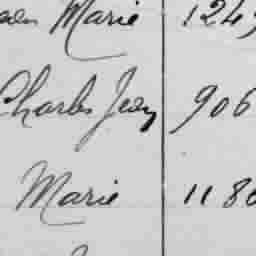 Marie 124
Charles Jean 906
Marie 118